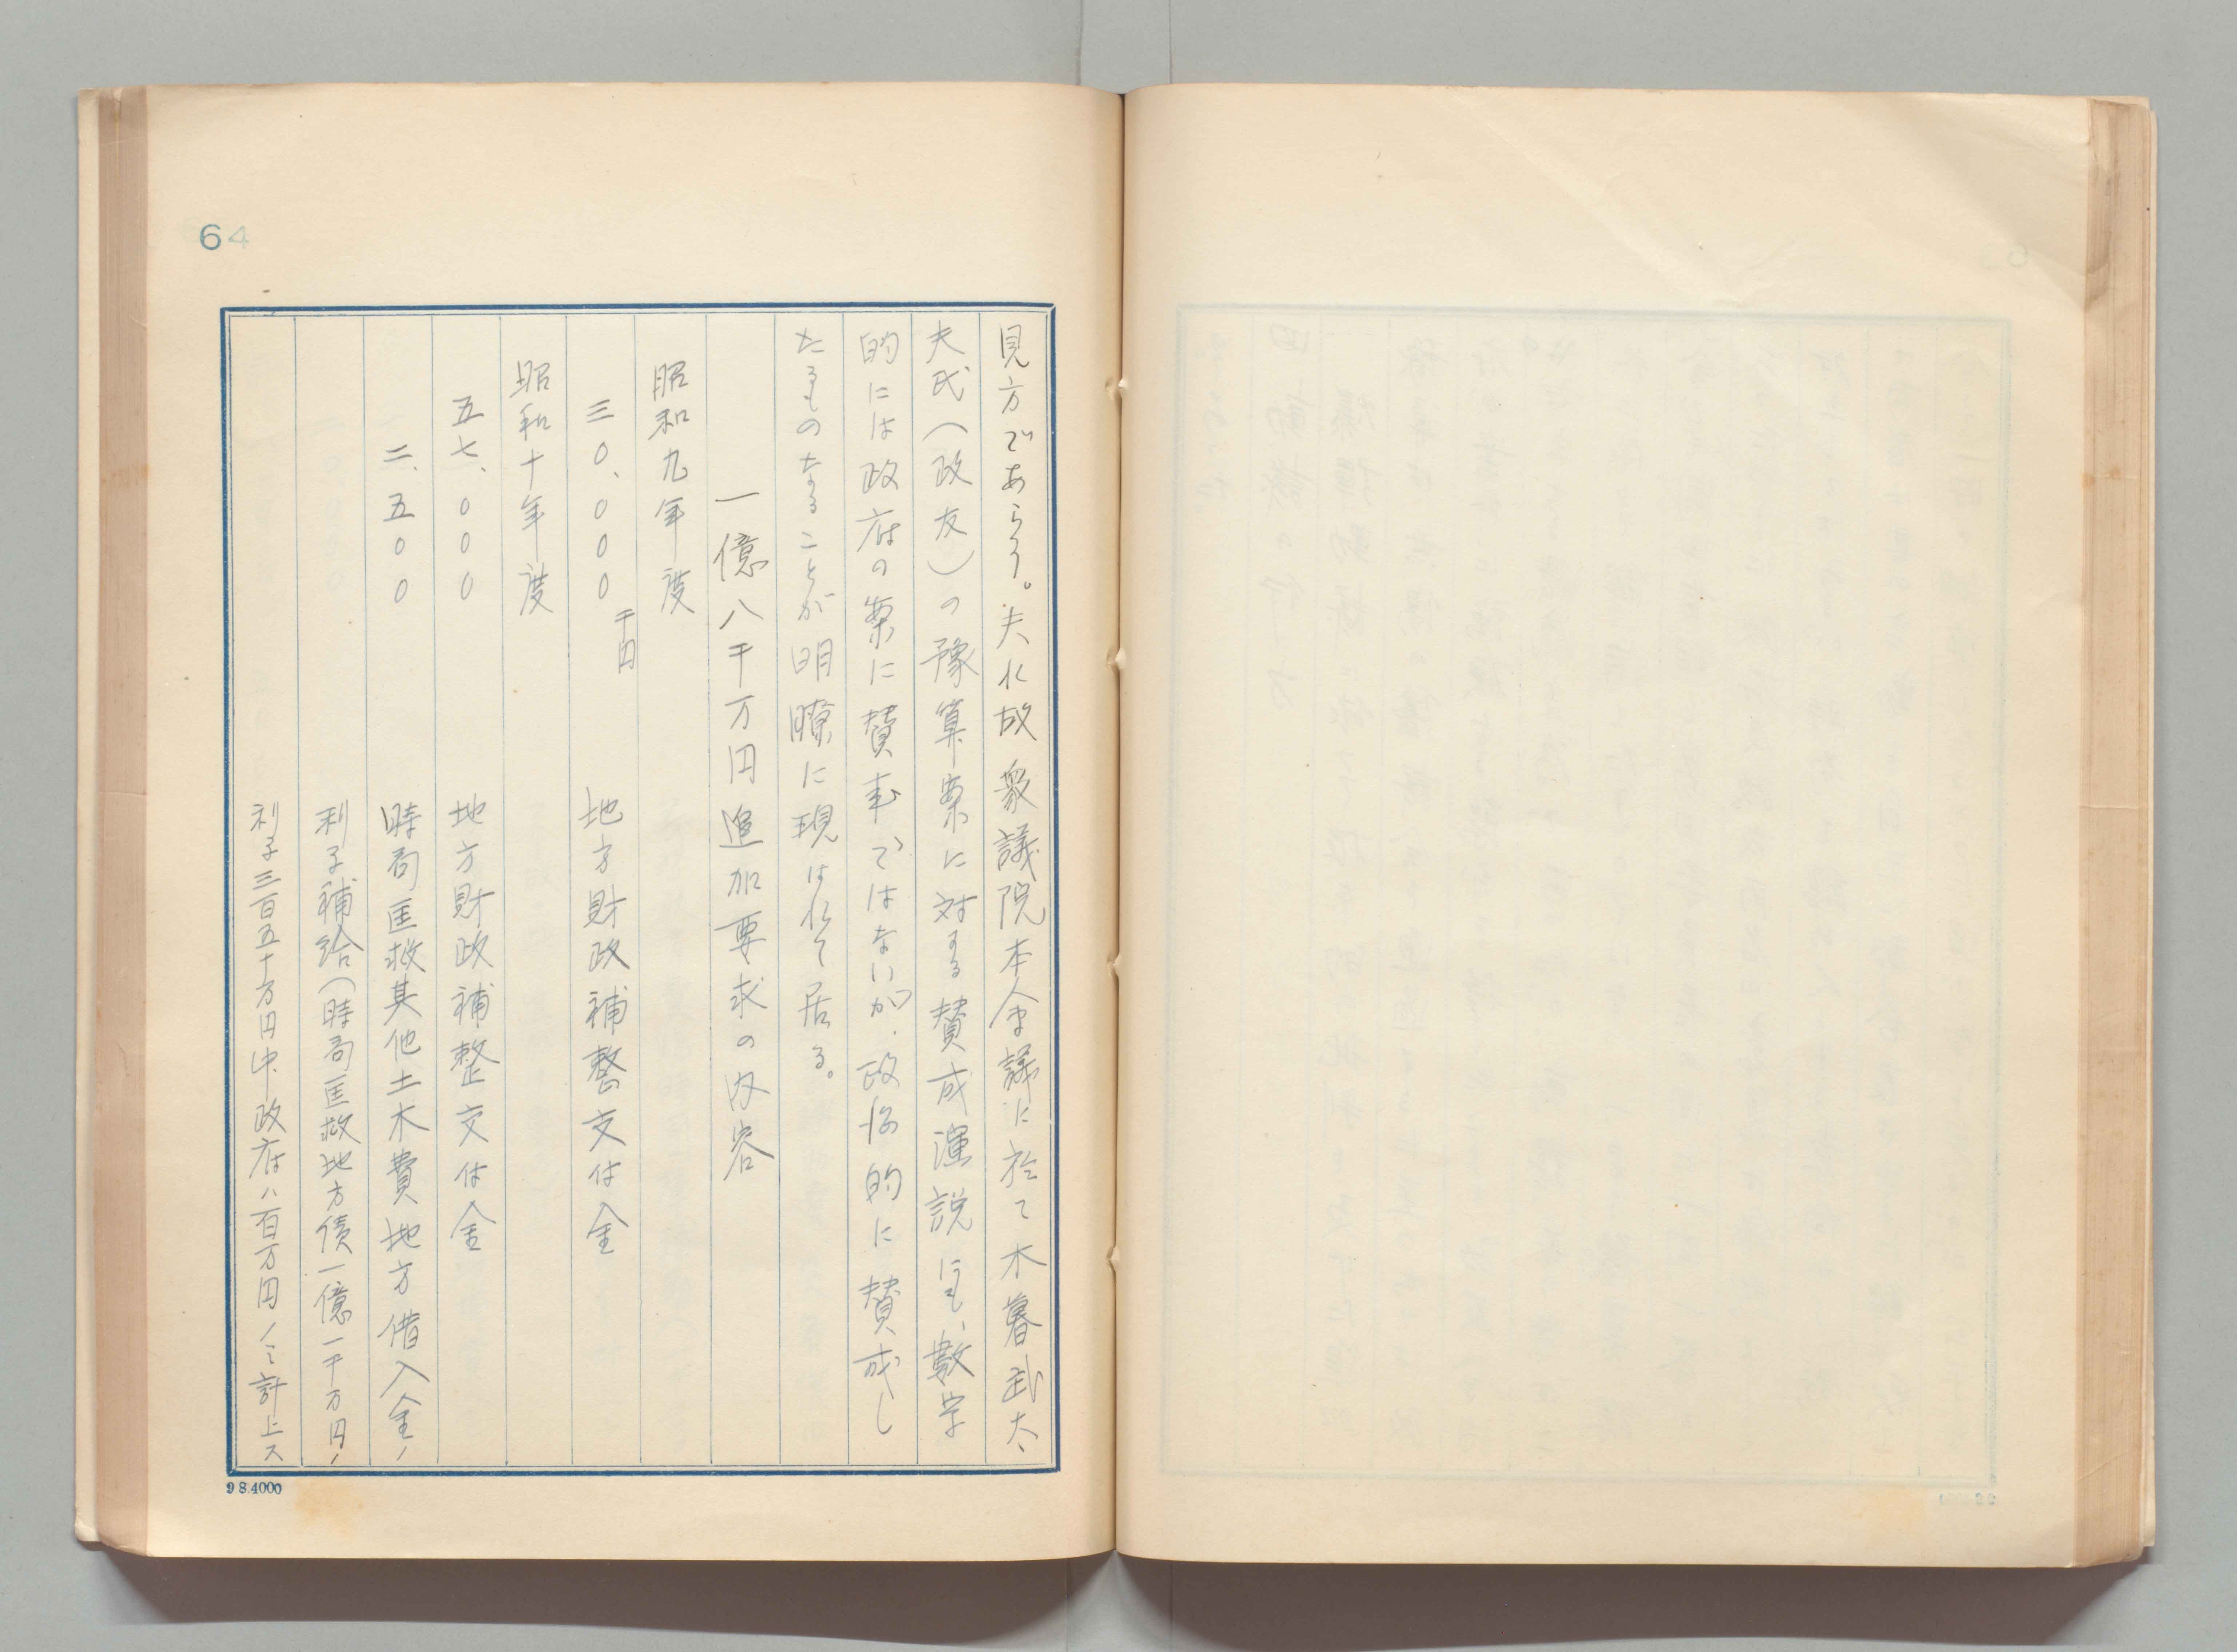 64
見方であらう。夫れ故衆議院本会議に於て木暮武太
夫氏（政友）の豫算案に対する賛成演説にも、数学
的には政府の案に賛事ではないが、政治的に賛成し
たるものなることが明瞭に現はれて居る。
一億八千万円追加要求の内容
昭和九年度
三〇、〇〇〇千円 地方財政補整交付金
昭和十年度
五七、〇〇〇 地方財政補整交付金
二、五〇〇 時局匡救其他土木費地方借入金ノ
利子補給（時局匡救地方債一億一千万円ノ
利子三百五十万円中、政府ハ百万円ノミ計上ス
9 8.4000